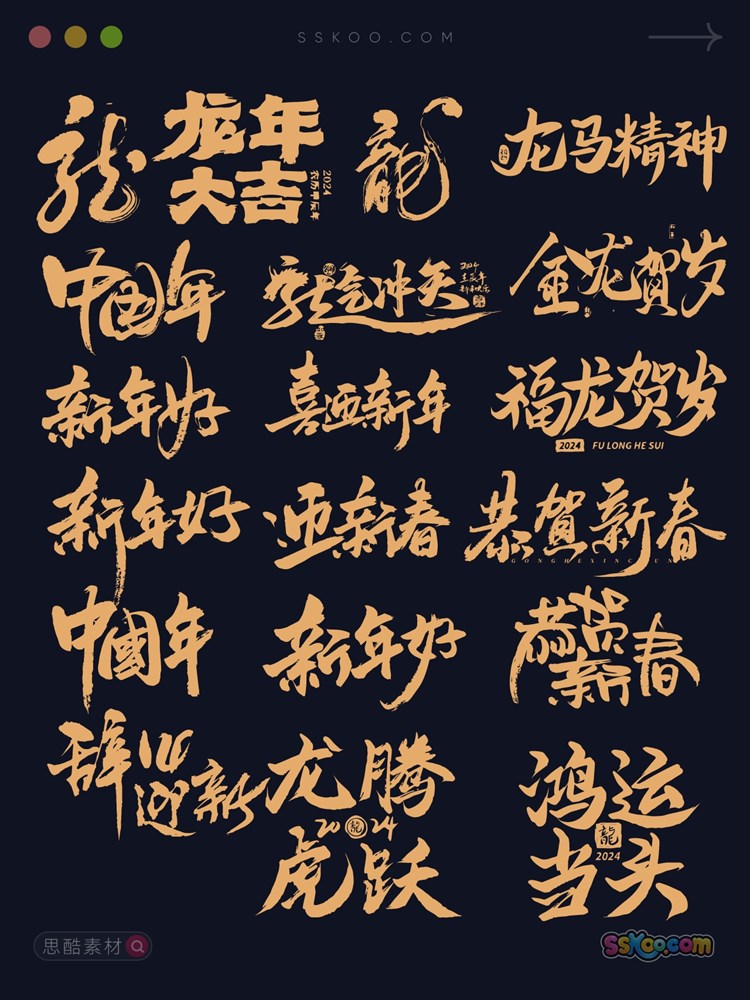 SSKOO.COM
龙
龙年
大吉
2024
农历甲辰年
龍
龙马精神
中国年
龙气冲天
2024
金龙賀岁
新年好
喜迎新年
福龙贺岁
2024 FU LONG HE SUI
新年好
迎新春
恭賀新春
GONGHEXINCHUN
中國年
新年好
恭贺
新春
辞旧
迎新
龙腾
20龍24
虎跃
鸿运
龍
2024
当头
思酷素材
sskoo.com